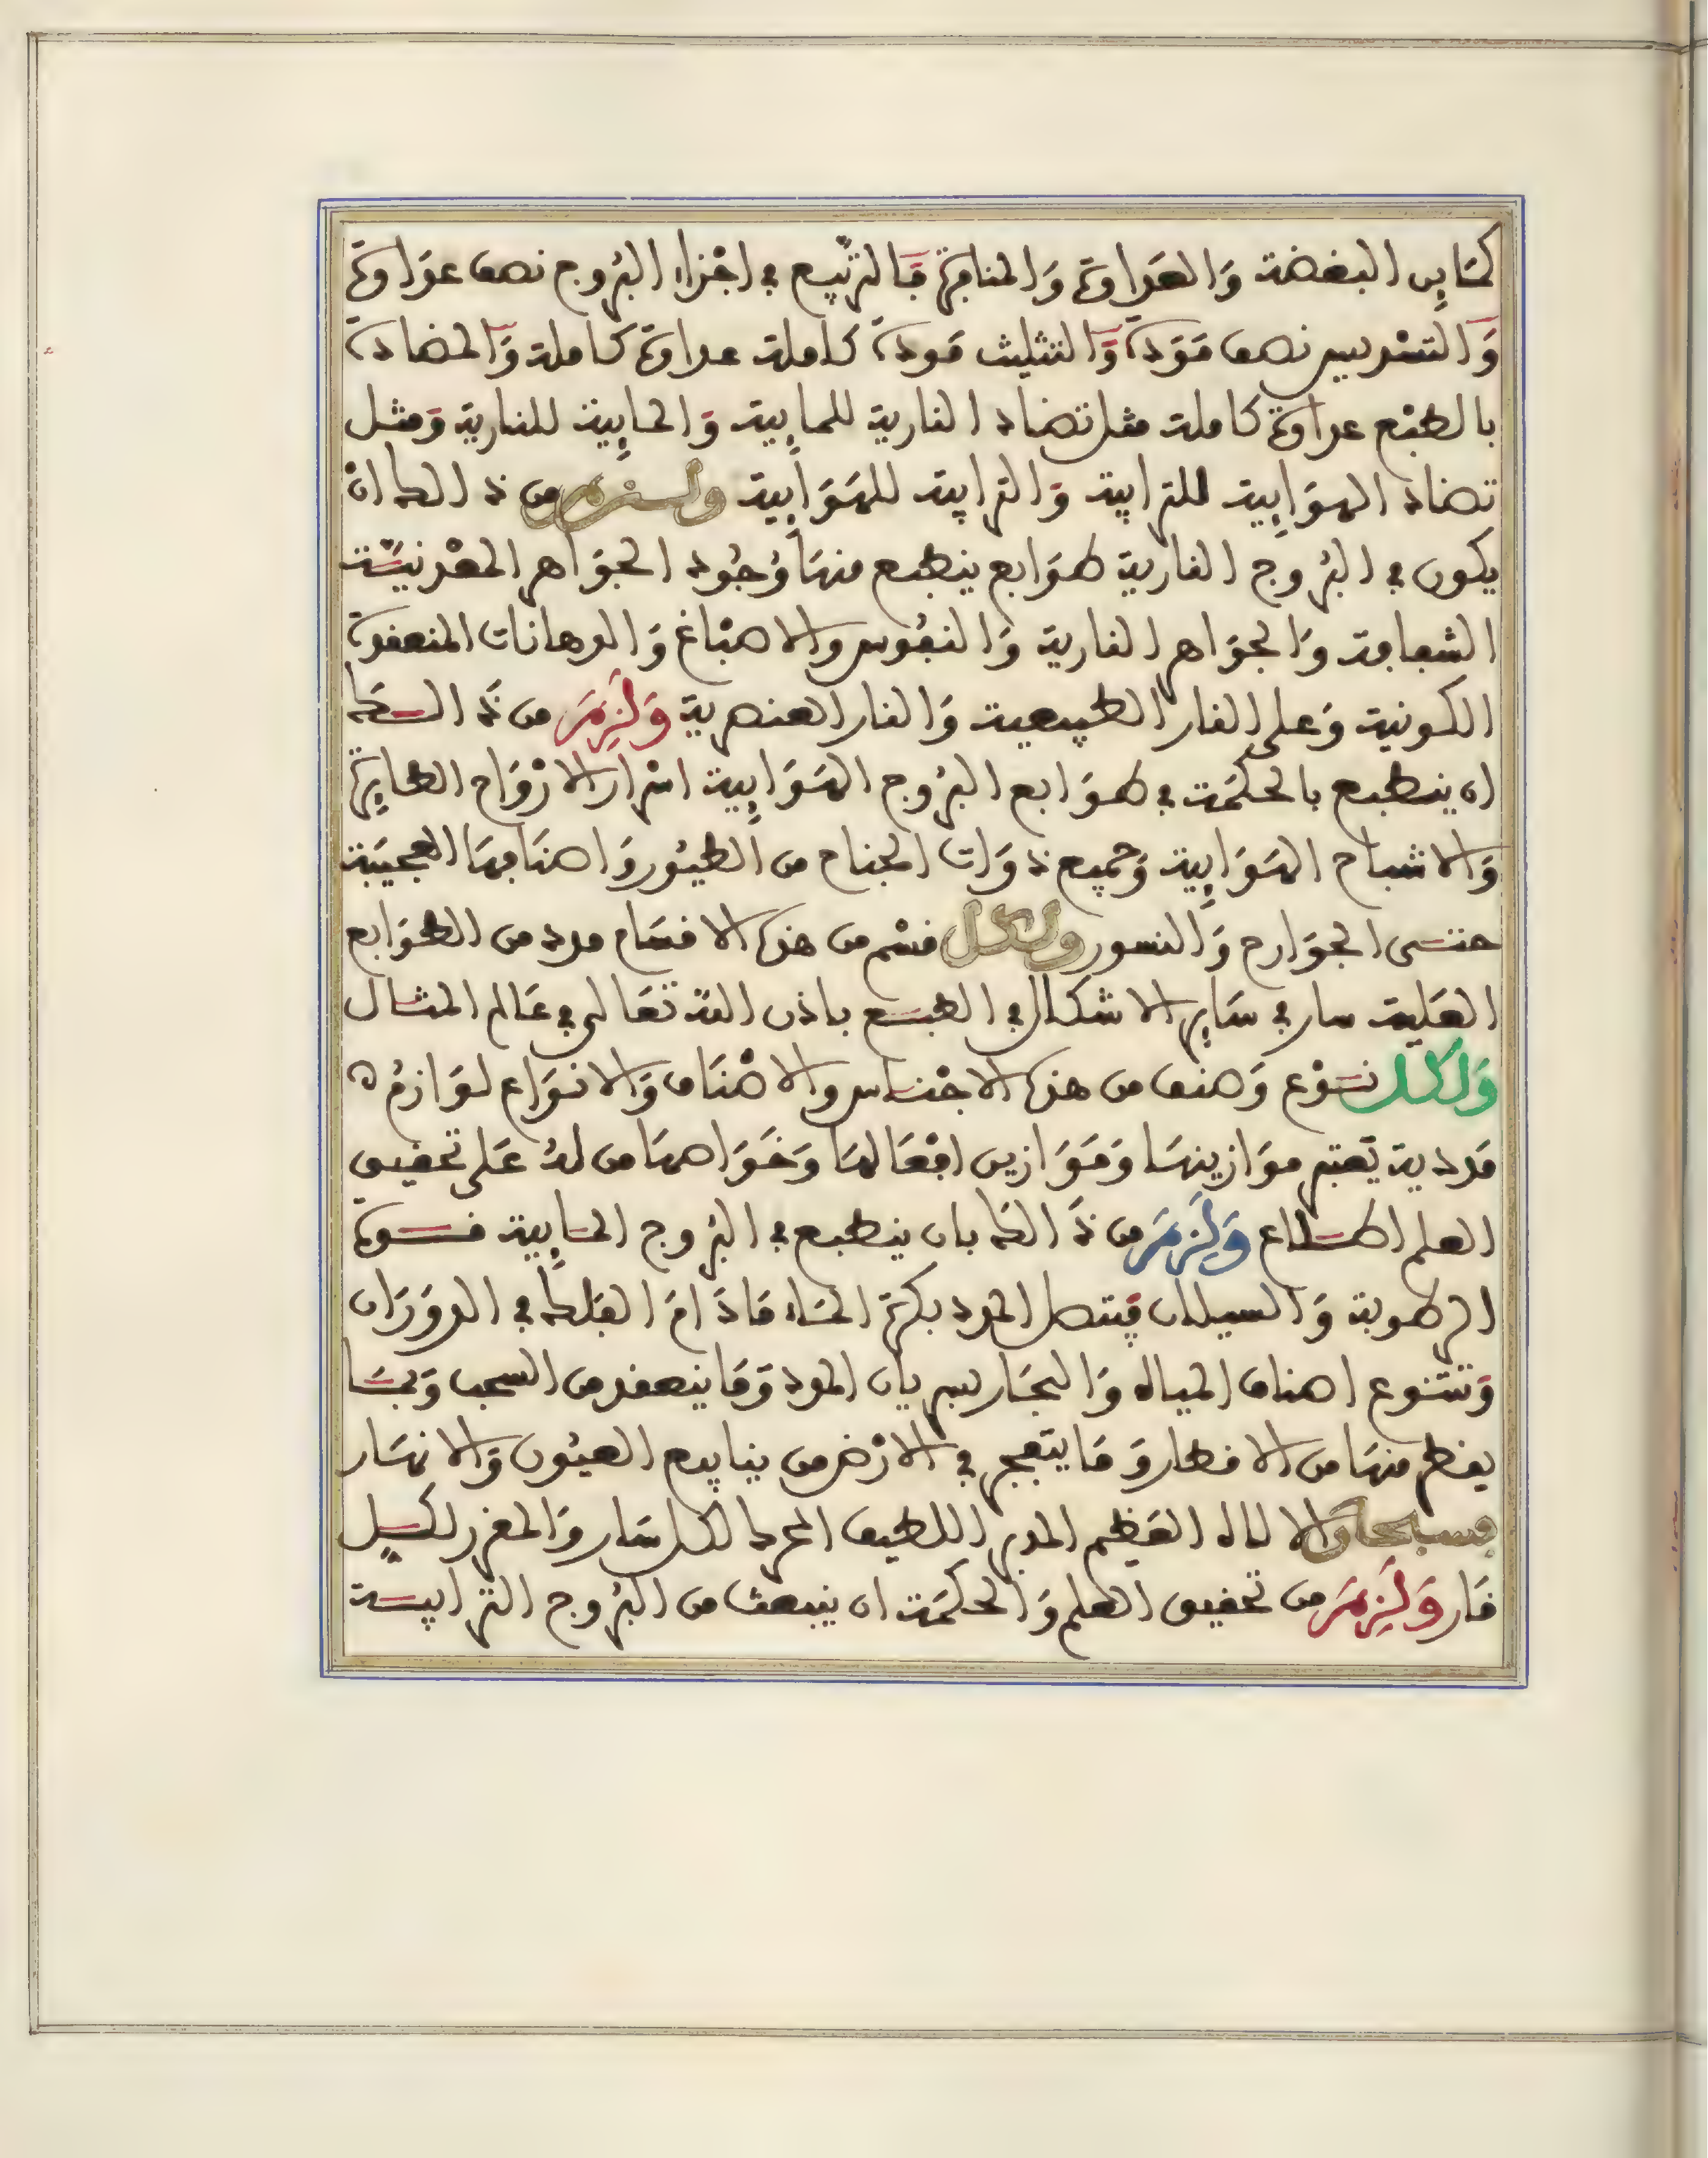 كتاين البغضة وَالعَداوة وَالمنافرة فَالتربيع في اجْزاء البرُوج نصف عدَاوة
وَالتسْديس نصف مَوَدة وَالتثليث مَودة كاملة عداوة كاملة وَالمضادة
بالطبْع عداوة كاملة مثل تضاد النارية للمايية وَالمايية للنارية وَمثل
تضاد الهوَايية للترابية وَالترابية للهوَايية ولزم من ذالك ان
يكون في البرُوج النارية طوَابع ينطبع منهَا وُجُود الجوَاهر المعْدنيَّة
الشفافة وَالجوَاهر النارية وَالنفُوس والاصْباغ وَالدهانات المنعقدة
الكونية وَعلى النار الطبيعية وَالنار العنصرية وَلَزِمَ من ذَالك
ان ينطبع بالحكمَة في طوَابع البرُوج الهوَايية اسْرار الارْوَاح الطايرة
وَالاشباح الهوَايية وَجميع ذوَات الجناح من الطيُور وَاصنَافهَا العجيبَة
حتى الجوَارح وَالنسور ولكل قسْم من هذه الاقسَام مدد من الطوَابع
العَلية سار في سَاير الاشكال في الطبع باذن الله تعَالى في عَالم المثال
وَلكل نوْع وَصنف من هذه الاجْناس والاصْنَاف وَالانوَاع لوَازمُ
مَددية يَعتبر موَازينهَا وَمَوَازين افْعَالهَا وَخَوَاصهَا من لهُ عَلى تحقيق
العلم اطلاع وَلَزمَ من ذَالك بان ينطبع في البرُوج المايية قوة
الرطوبة وَالسيلان فيتصل المدد بكرة المَاء مَادَامَ الفلك في الدوَرَان
وَتتنوع اصناف المياه وَالبحَار بسريان المدد وَمَا ينعقد من السحب وَبمَا
يقطر منهَا من الاقطار وَمَا يتفجر في الارْض من ينابيع العيُون وَالانهَار
فسبحان الالاه العَظيم المدبر اللطيف المحرك لكل سَار وَالمقرر لكل
قَار وَلَزِمَ من تحقيق العلم وَالحكمَة ان ينبعث من البرُوج الترابية